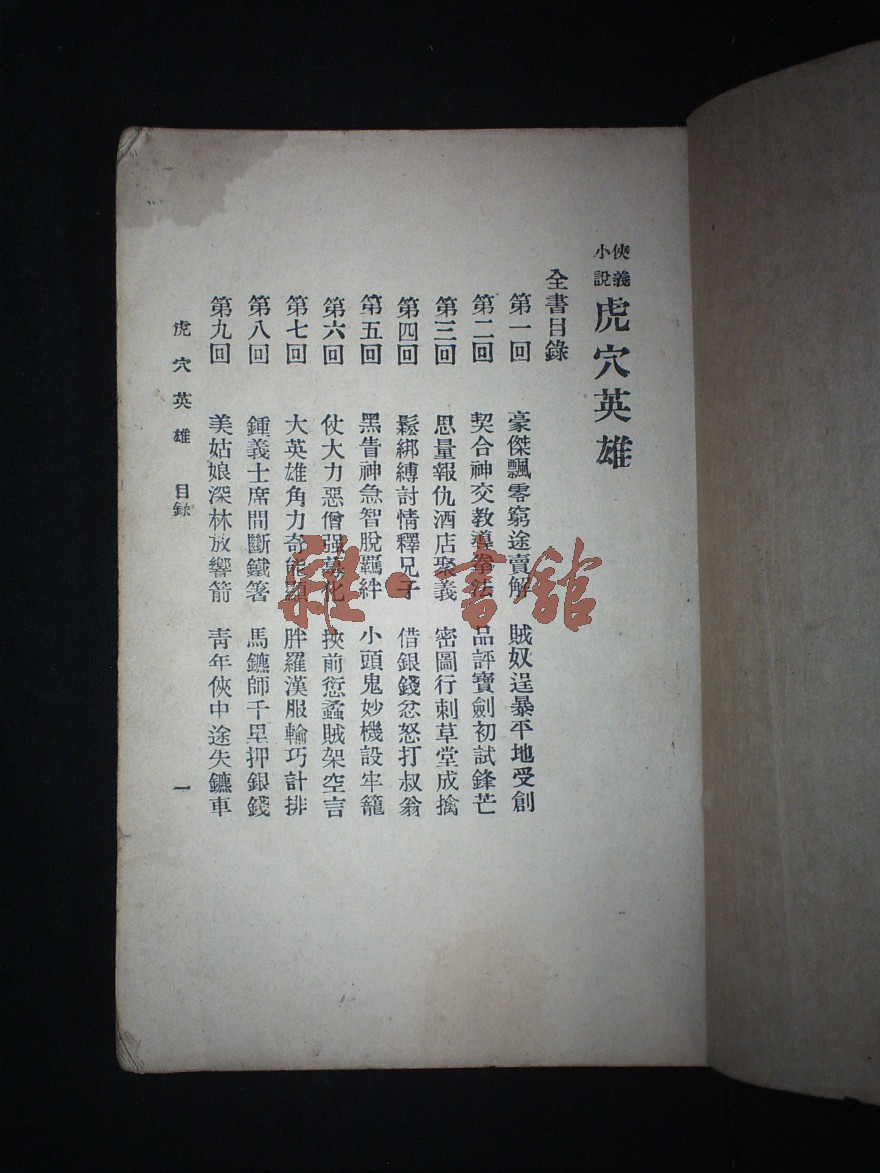 俠義小說 虎穴英雄
全書目錄
第一回 豪傑飄零窮途賣解 賊奴逞暴平地受創
第二回 契合神交教導拳法 品評寶劍初試鋒芒
第三回 思量報仇酒店聚義 密圖行刺草堂成擒
第四回 鬆綁縛討情釋兄子 借銀錢忿怒打叔翁
第五回 黑眚神急智脫羈絆 小頭鬼妙機設牢籠
第六回 仗大力惡僧强募化 挾前愆蠢賊架空言
第七回 大英雄角力奇能顯 胖羅漢服輸巧計排
第八回 鍾義士席間斷鐵箸 馬鑣師千里押銀錢
第九回 美姑娘深林放響箭 靑年俠中途失鑣車
虎穴英雄 目錄 一
雜·書館